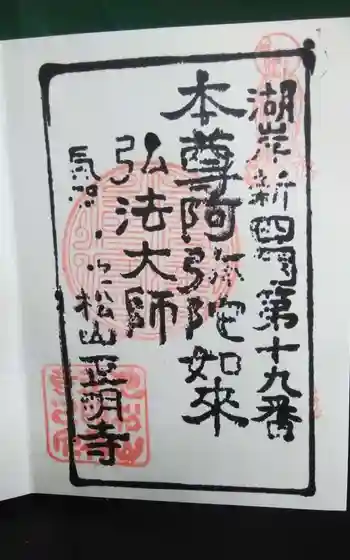 湖岸新四國第十九番
本尊阿弥陀如來
弘法大師
松山正明寺